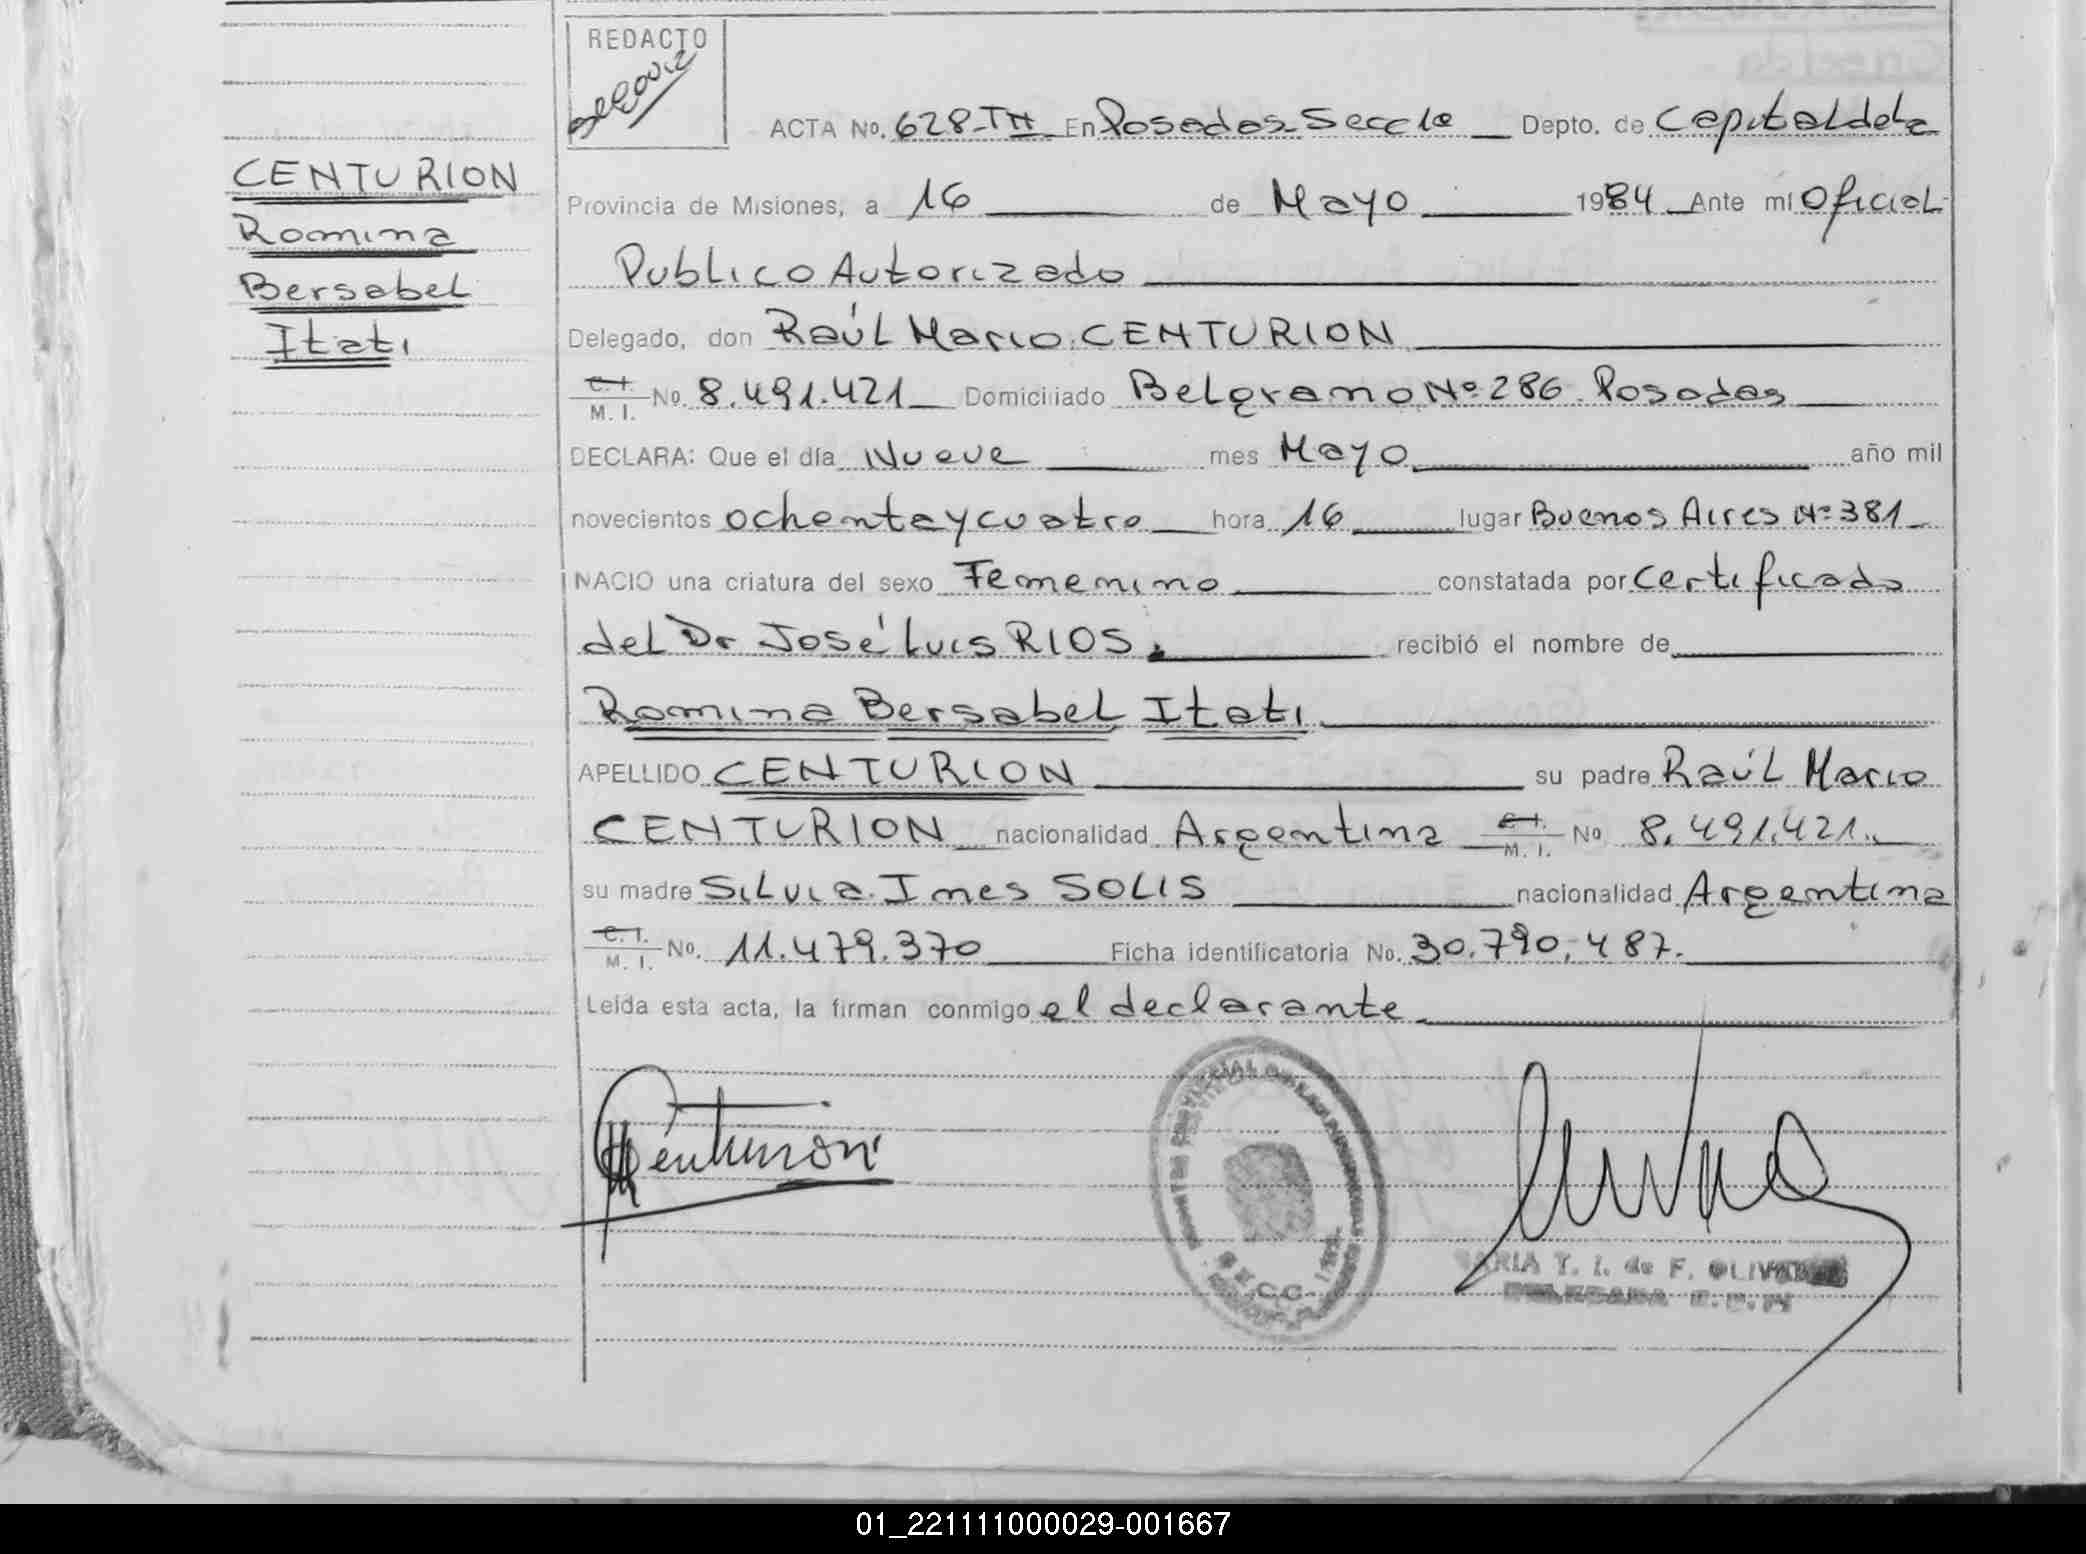 REDACTO
Segovia
ACTA No. 628-TH En Posadas-Secc 1a Depto. de Capital de la
CENTURION
Romina
Bersabel
Itatí
Provincia de Misiones, a 16 de Mayo 1984 Ante mi Oficial
Publico Autorizado
Delegado, don Raúl Mario CENTURION
C. I. M. I. No. 8.491.421 Domiciliado Belgrano Nº 286 Posadas
DECLARA: Que el día Nueve mes Mayo año mil
novecientos ochenta y cuatro hora 16 lugar Buenos Aires Nº 381
NACIO una criatura del sexo Femenino constatada por Certificado
del Dr José Luis RIOS. recibió el nombre de
Romina Bersabel Itatí
APELLIDO CENTURION su padre Raúl Mario
CENTURION nacionalidad Argentina C. I. M. I. No 8.491.421.
su madre Silvia Ines SOLIS nacionalidad Argentina
C. I. M. I. No. 11.479.370 Ficha identificatoria No. 30.790.487.
Leída esta acta, la firman conmigo el declarante
Centurion
MARIA T. I. de F. OLIVERA
DELEGADA
01_221111000029-001667